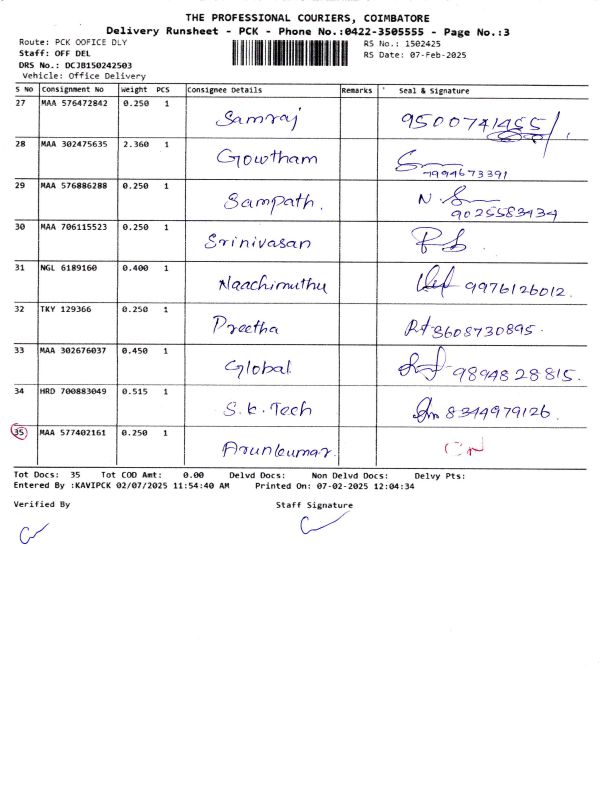 THE PROFESSIONAL COURIERS, COIMBATORE
Delivery Runsheet - PCK - Phone No.:0422-3505555 - Page No.:3
Route: PCK OOFICE DLY RS No.: 1502425
Staff: OFF DEL RS Date: 07-Feb-2025
DRS No.: DCJB150242503
Vehicle: Office Delivery
S No Consignment No Weight PCS Consignee Details Remarks Seal & Signature
27 MAA 576472842 0.250 1 Samraj 9500741455
28 MAA 302475635 2.360 1 Gowtham 7994673391
29 MAA 576886288 0.250 1 Sampath. 9025583434
30 MAA 706115523 0.250 1 Srinivasan
31 NGL 6189160 0.400 1 Naachimuthu 9976126012.
32 TKY 129366 0.250 1 Preetha 3608730895.
33 MAA 302676037 0.450 1 Global 9894828815.
34 HRD 700883049 0.515 1 S.k.Tech 8344979126.
35 MAA 577402161 0.250 1 Arunkumar. CN
Tot Docs: 35 Tot COD Amt: 0.00 Delvd Docs: Non Delvd Docs: Delvy Pts:
Entered By :KAVIPCK 02/07/2025 11:54:40 AM Printed On: 07-02-2025 12:04:34
Verified By Staff Signature